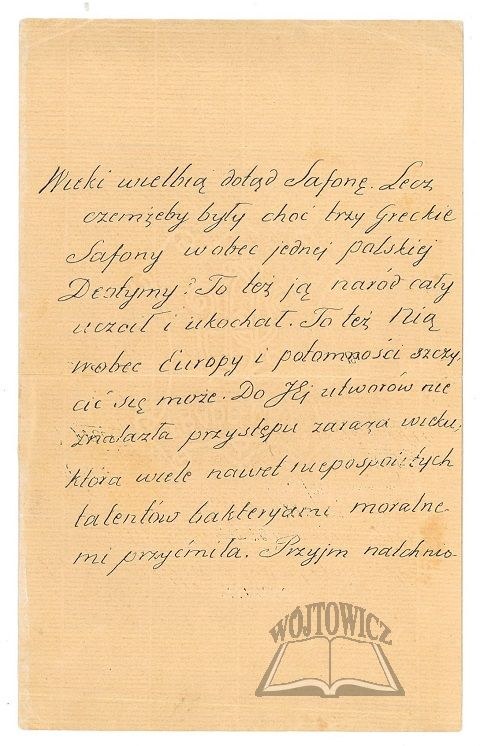 Wieki wielbią dotąd Safonę. Lecz
czemżeby były choć trzy Greckie
Safony wobec jednej polskiej
Deotymy? To też ją naród cały
uczcił i ukochał. To też Nią
wobec Europy i potomności szczy
cić się może. Do Jéj utworów nie
znalazła przystępu zaraza wieku,
która wiele nawet niepospolitych
talentów bakteryami moralne-
mi przyćmiła. Przyjm natchnio-
WÓJTOWICZ